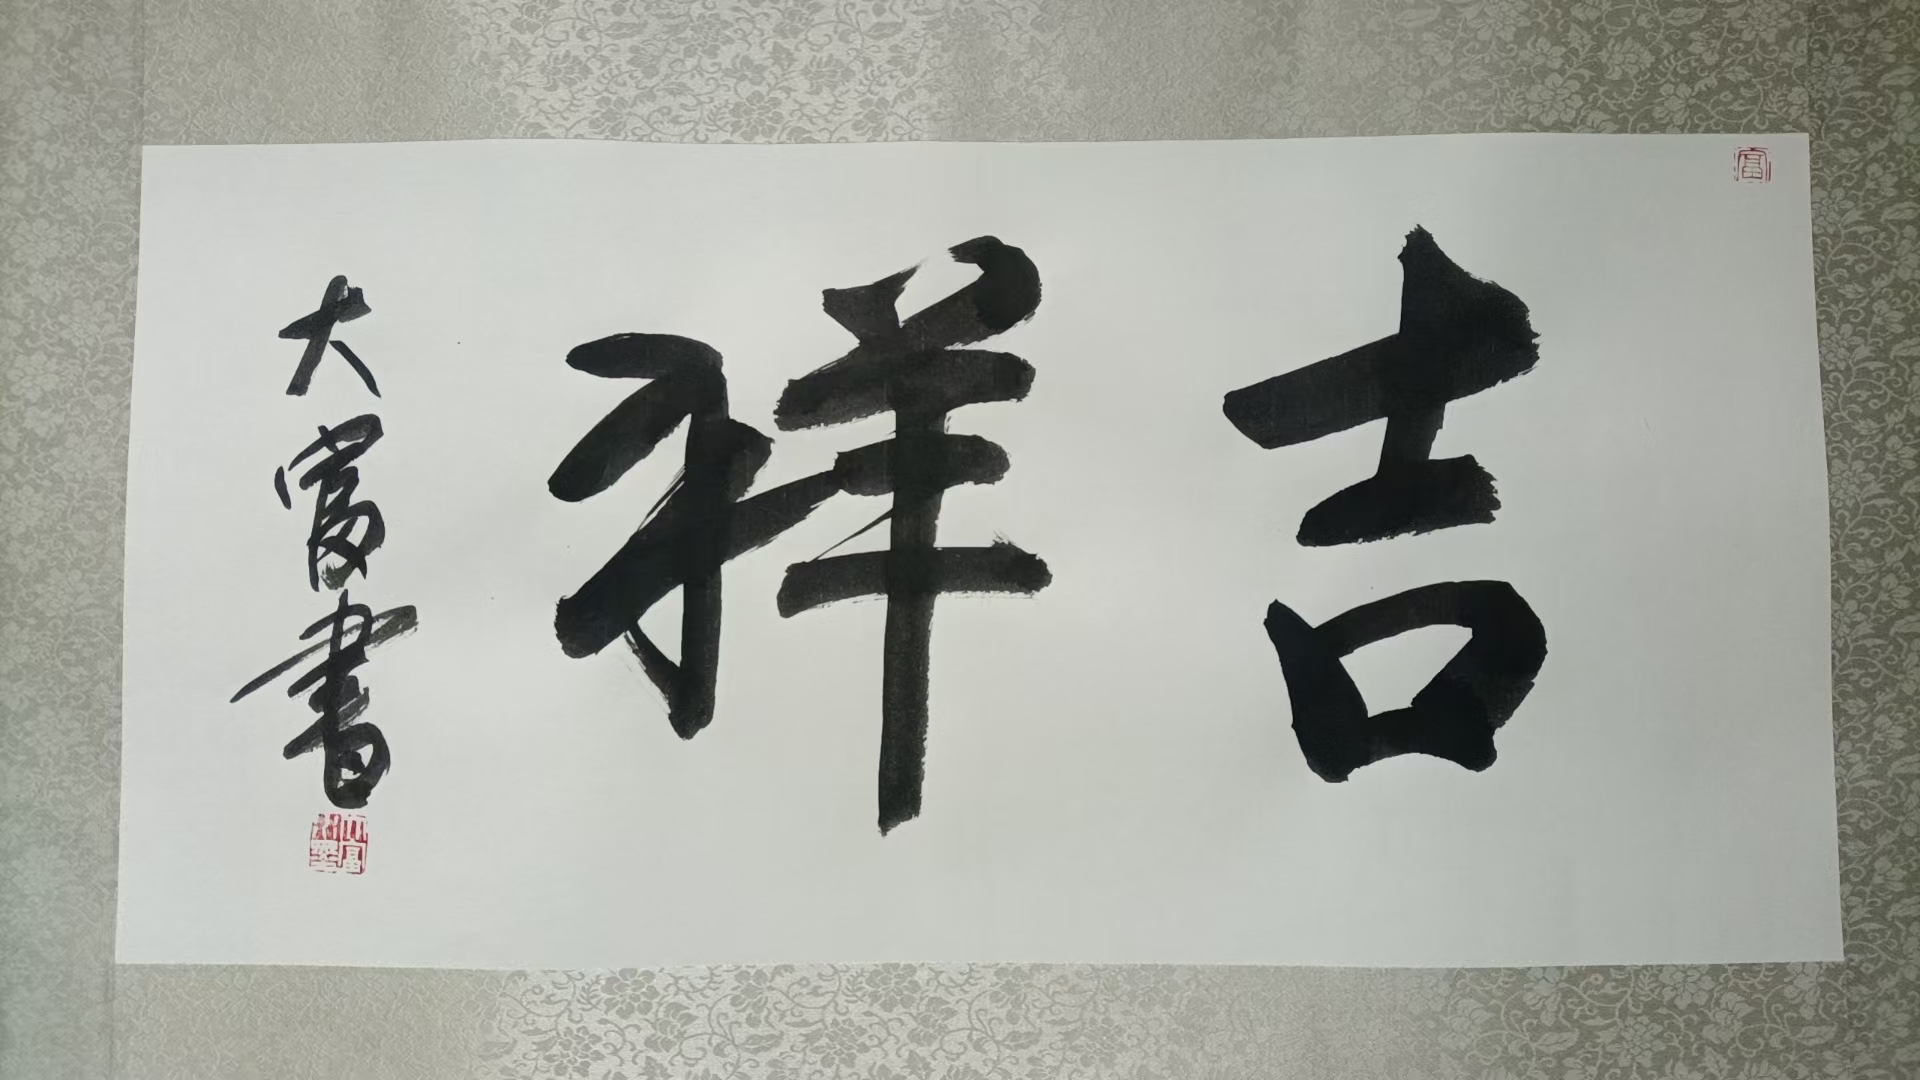 吉祥
大富書
富